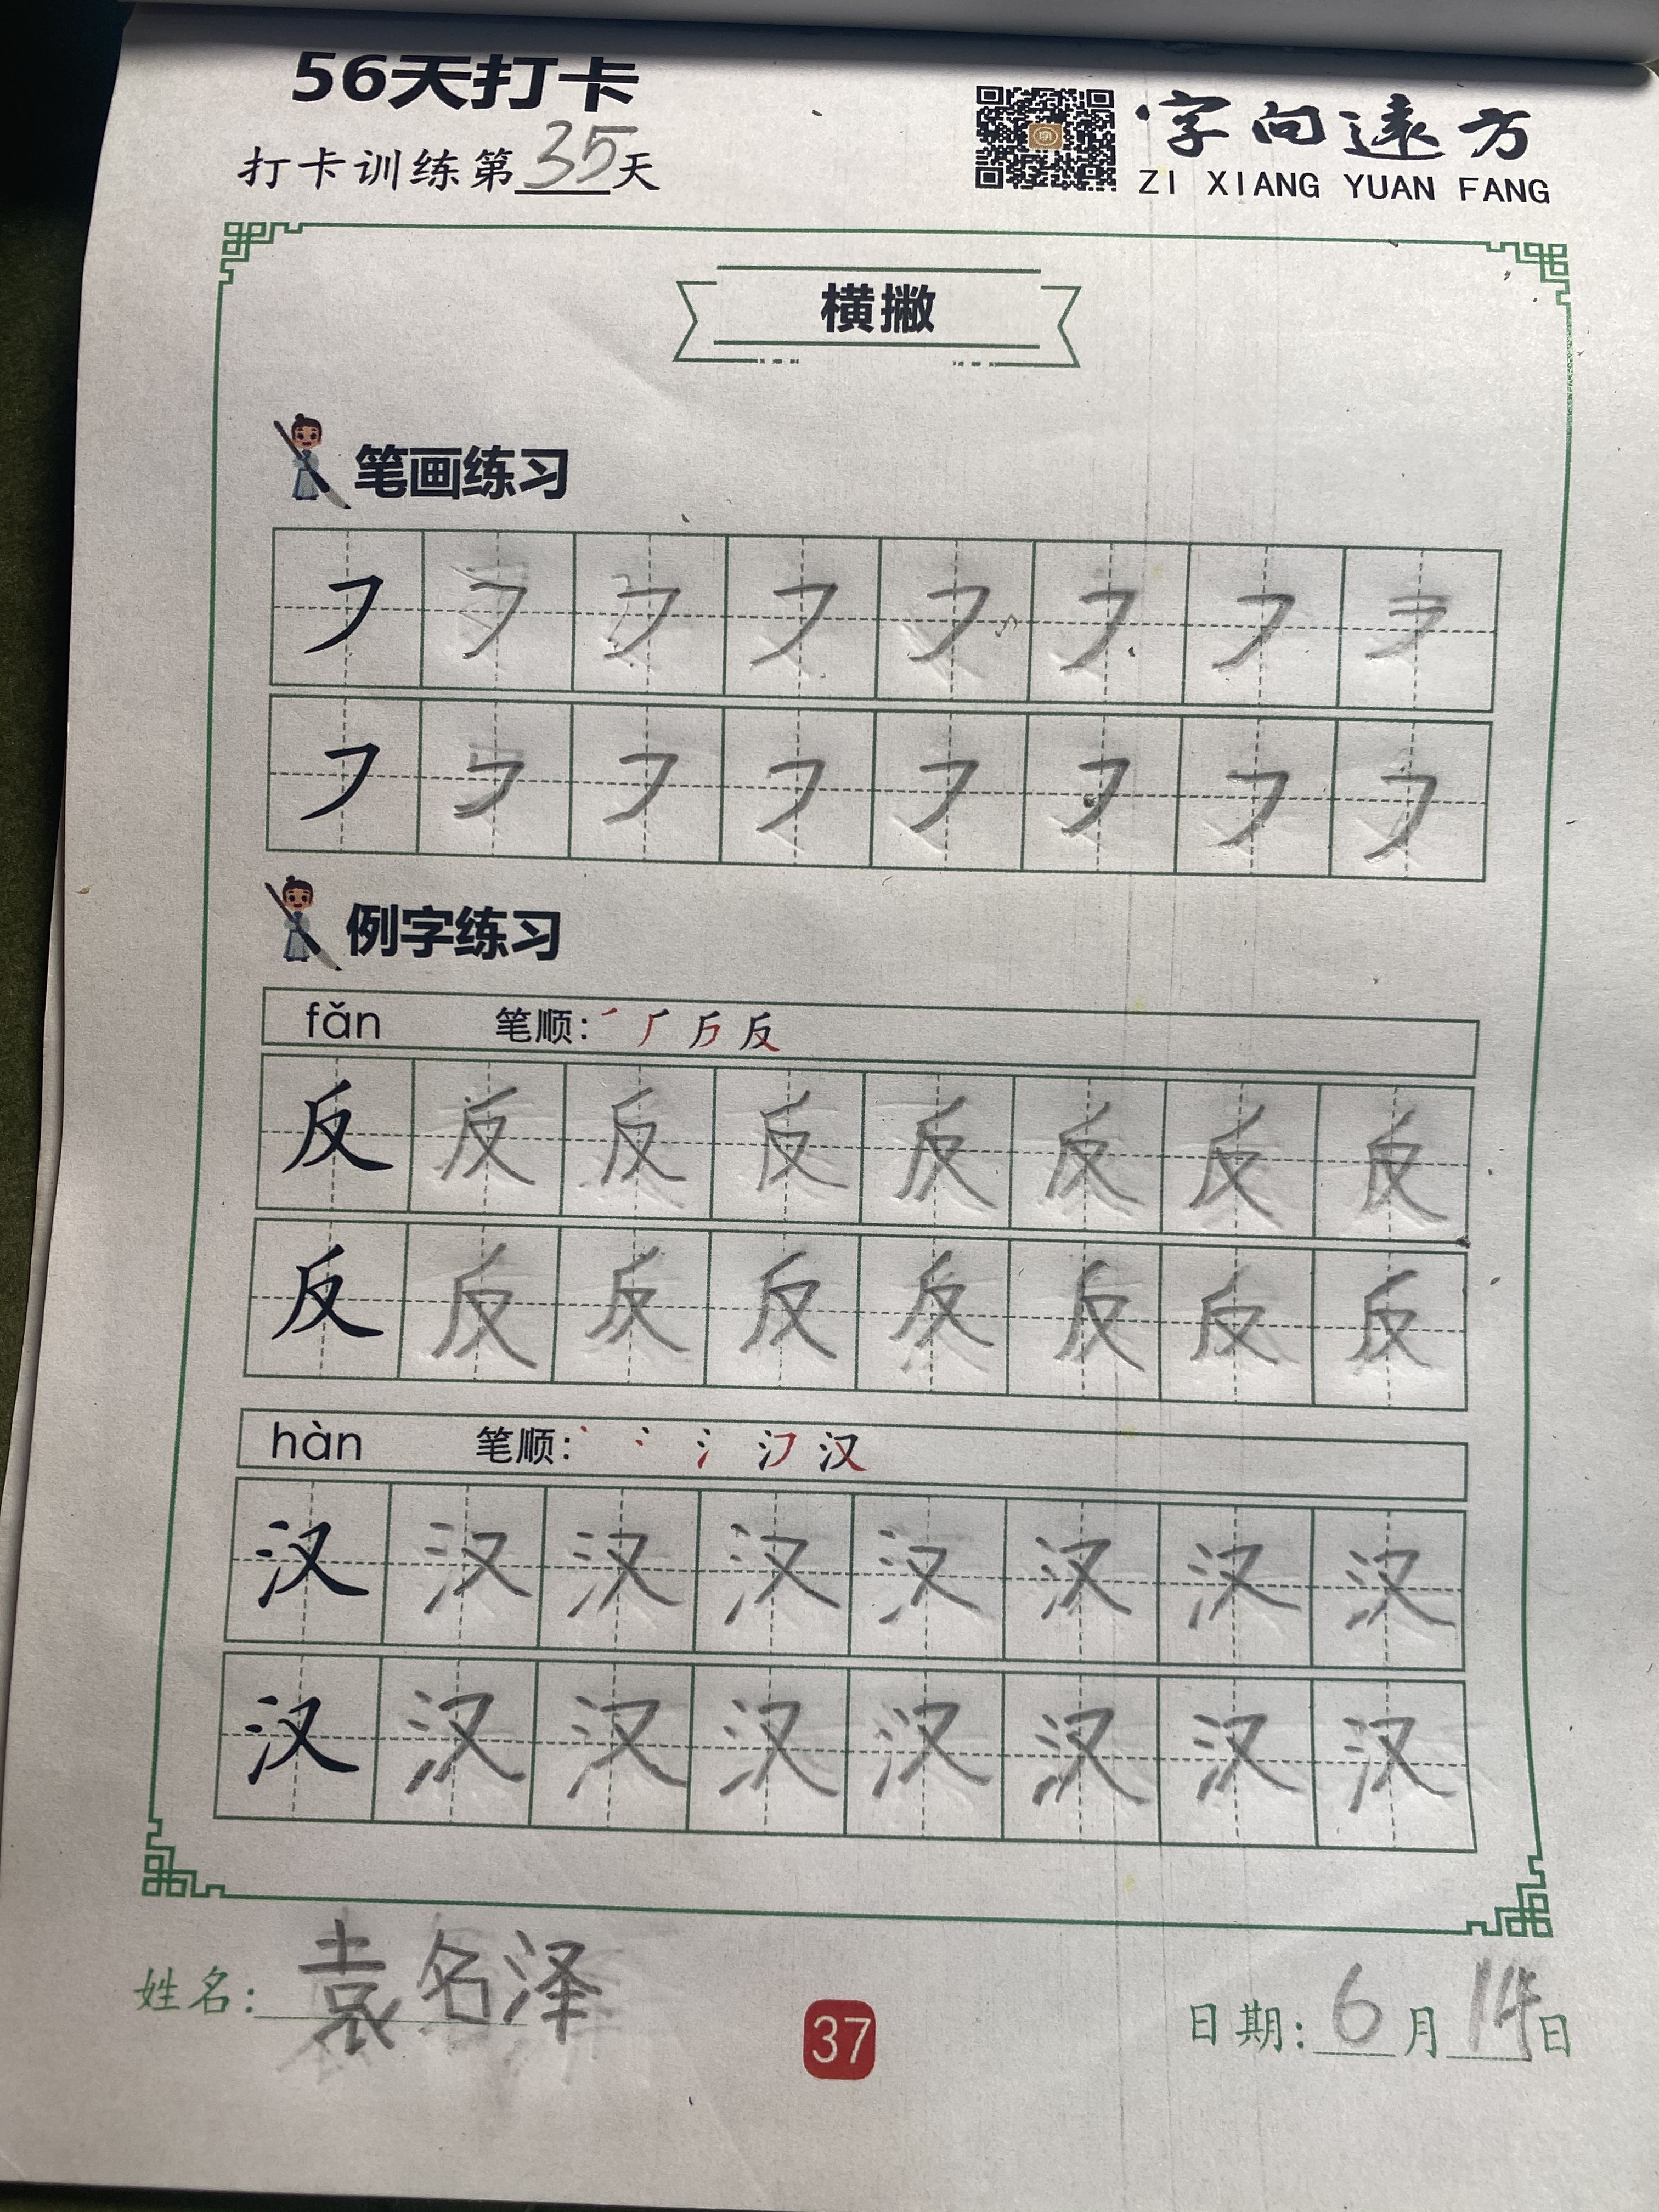 56天打卡
打卡训练第35天
字向遠方
ZI XIANG YUAN FANG
横撇
笔画练习
㇇ ㇇ ㇇ ㇇ ㇇ ㇇ ㇇ ㇇
㇇ ㇇ ㇇ ㇇ ㇇ ㇇ ㇇ ㇇
例字练习
fǎn 笔顺: 反
反 反 反 反 反 反 反 反
反 反 反 反 反 反 反 反
hàn 笔顺: 汉
汉 汉 汉 汉 汉 汉 汉 汉
汉 汉 汉 汉 汉 汉 汉 汉
姓名: 袁名泽
37
日期: 6月14日